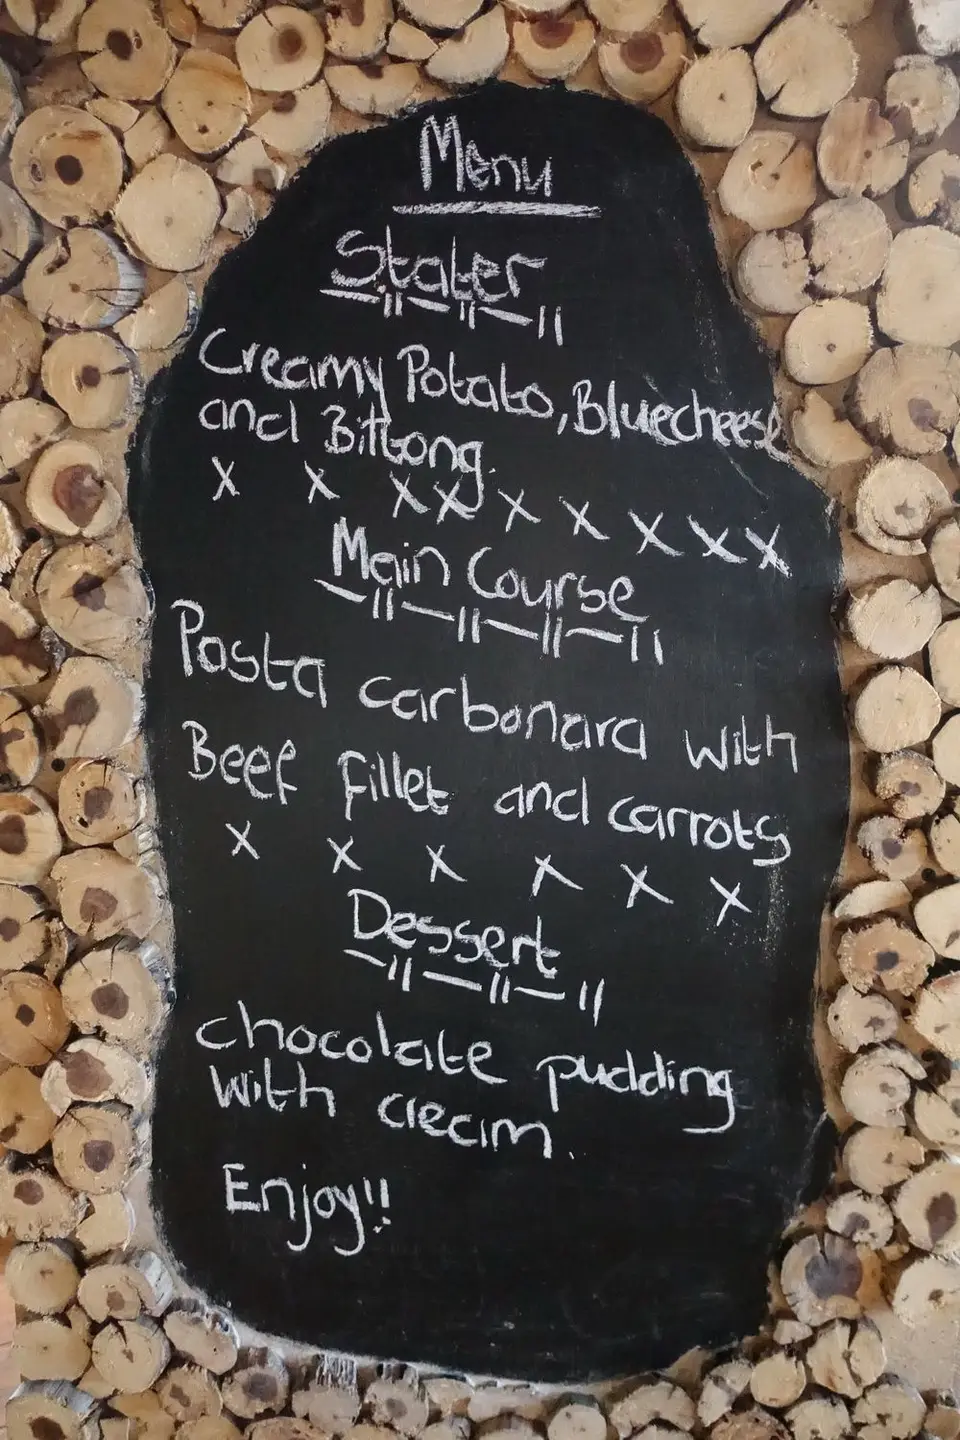 Menu
Stater
Creamy Potato, Bluecheese
and Biltong.
x x x x x x x x x
Main Course
Pasta carbonara with
Beef fillet and carrots
x x x x x x
Dessert
chocolate pudding
with cream.
Enjoy!!